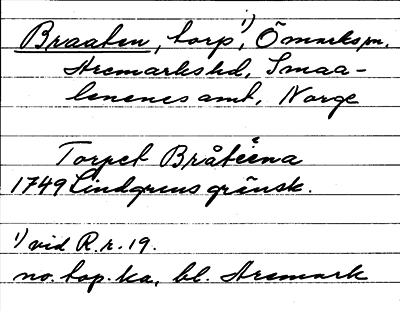 Braaten, torp 1), Ömarks sn.
Aremarks hd, Smaa-
lenenes amt, Norge
Torpet Bråteena
1749 Lindgrens gränsk.
1) vid R.r. 19.
no. top. ka, bl. Aremark